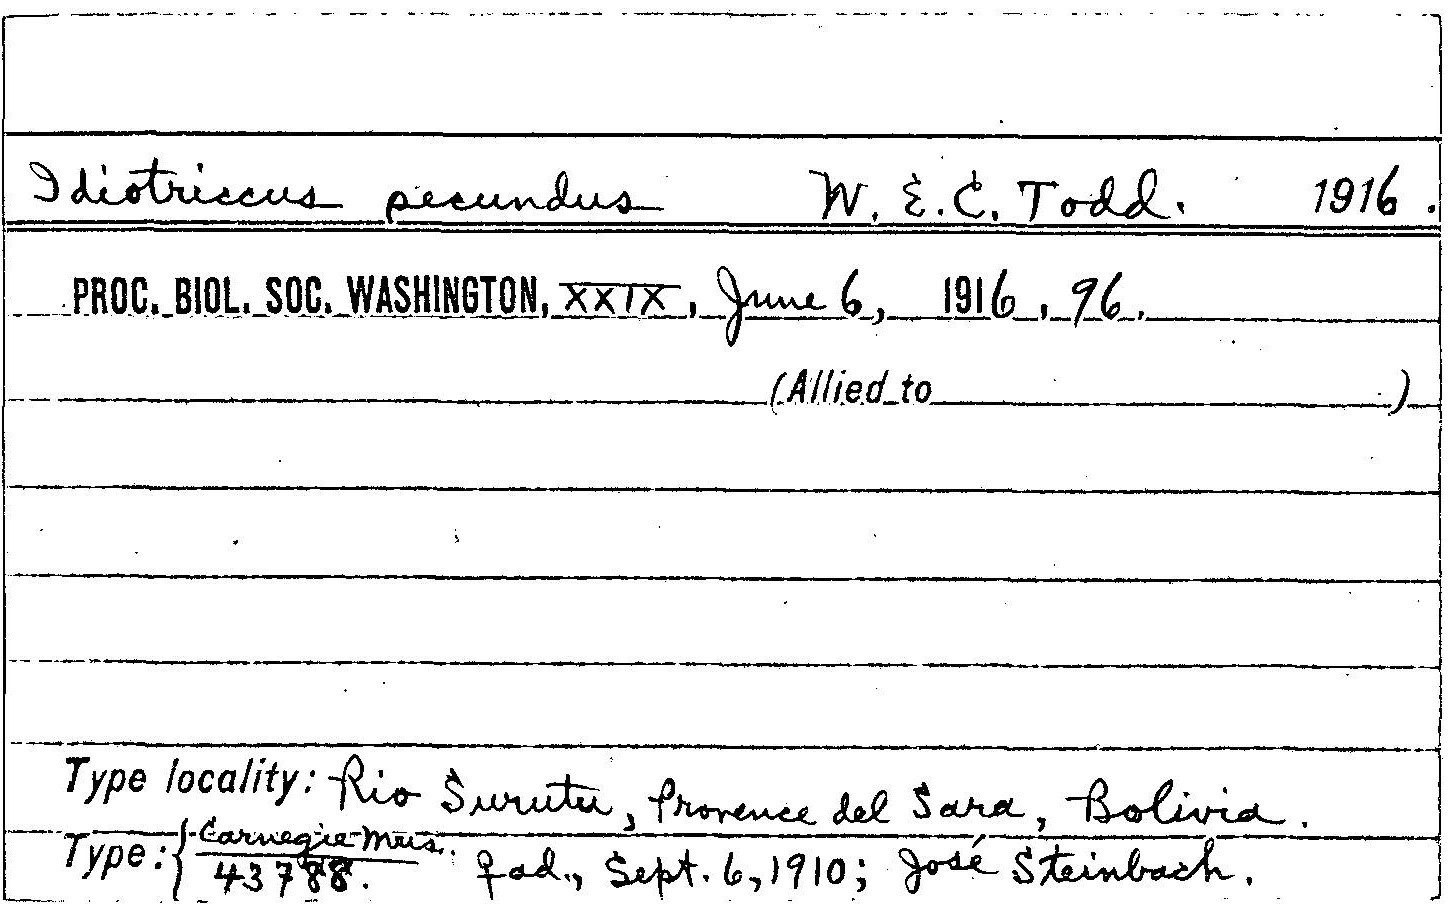 Idiotriccus pecundus W. E. C. Todd. 1916.
PROC. BIOL. SOC. WASHINGTON, XXIX, June 6, 1916, 96.
(Allied to )
Type locality: Rio Surutu, Provence del Sara, Bolivia.
Type: { Carnegie Mus. 43788. ♀ad., Sept. 6, 1910; José Steinbach.